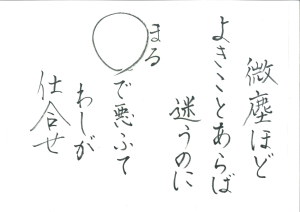 微塵ほど
よきことあらば
迷うのに
まる
で悪ふて
わしが
仕合せ